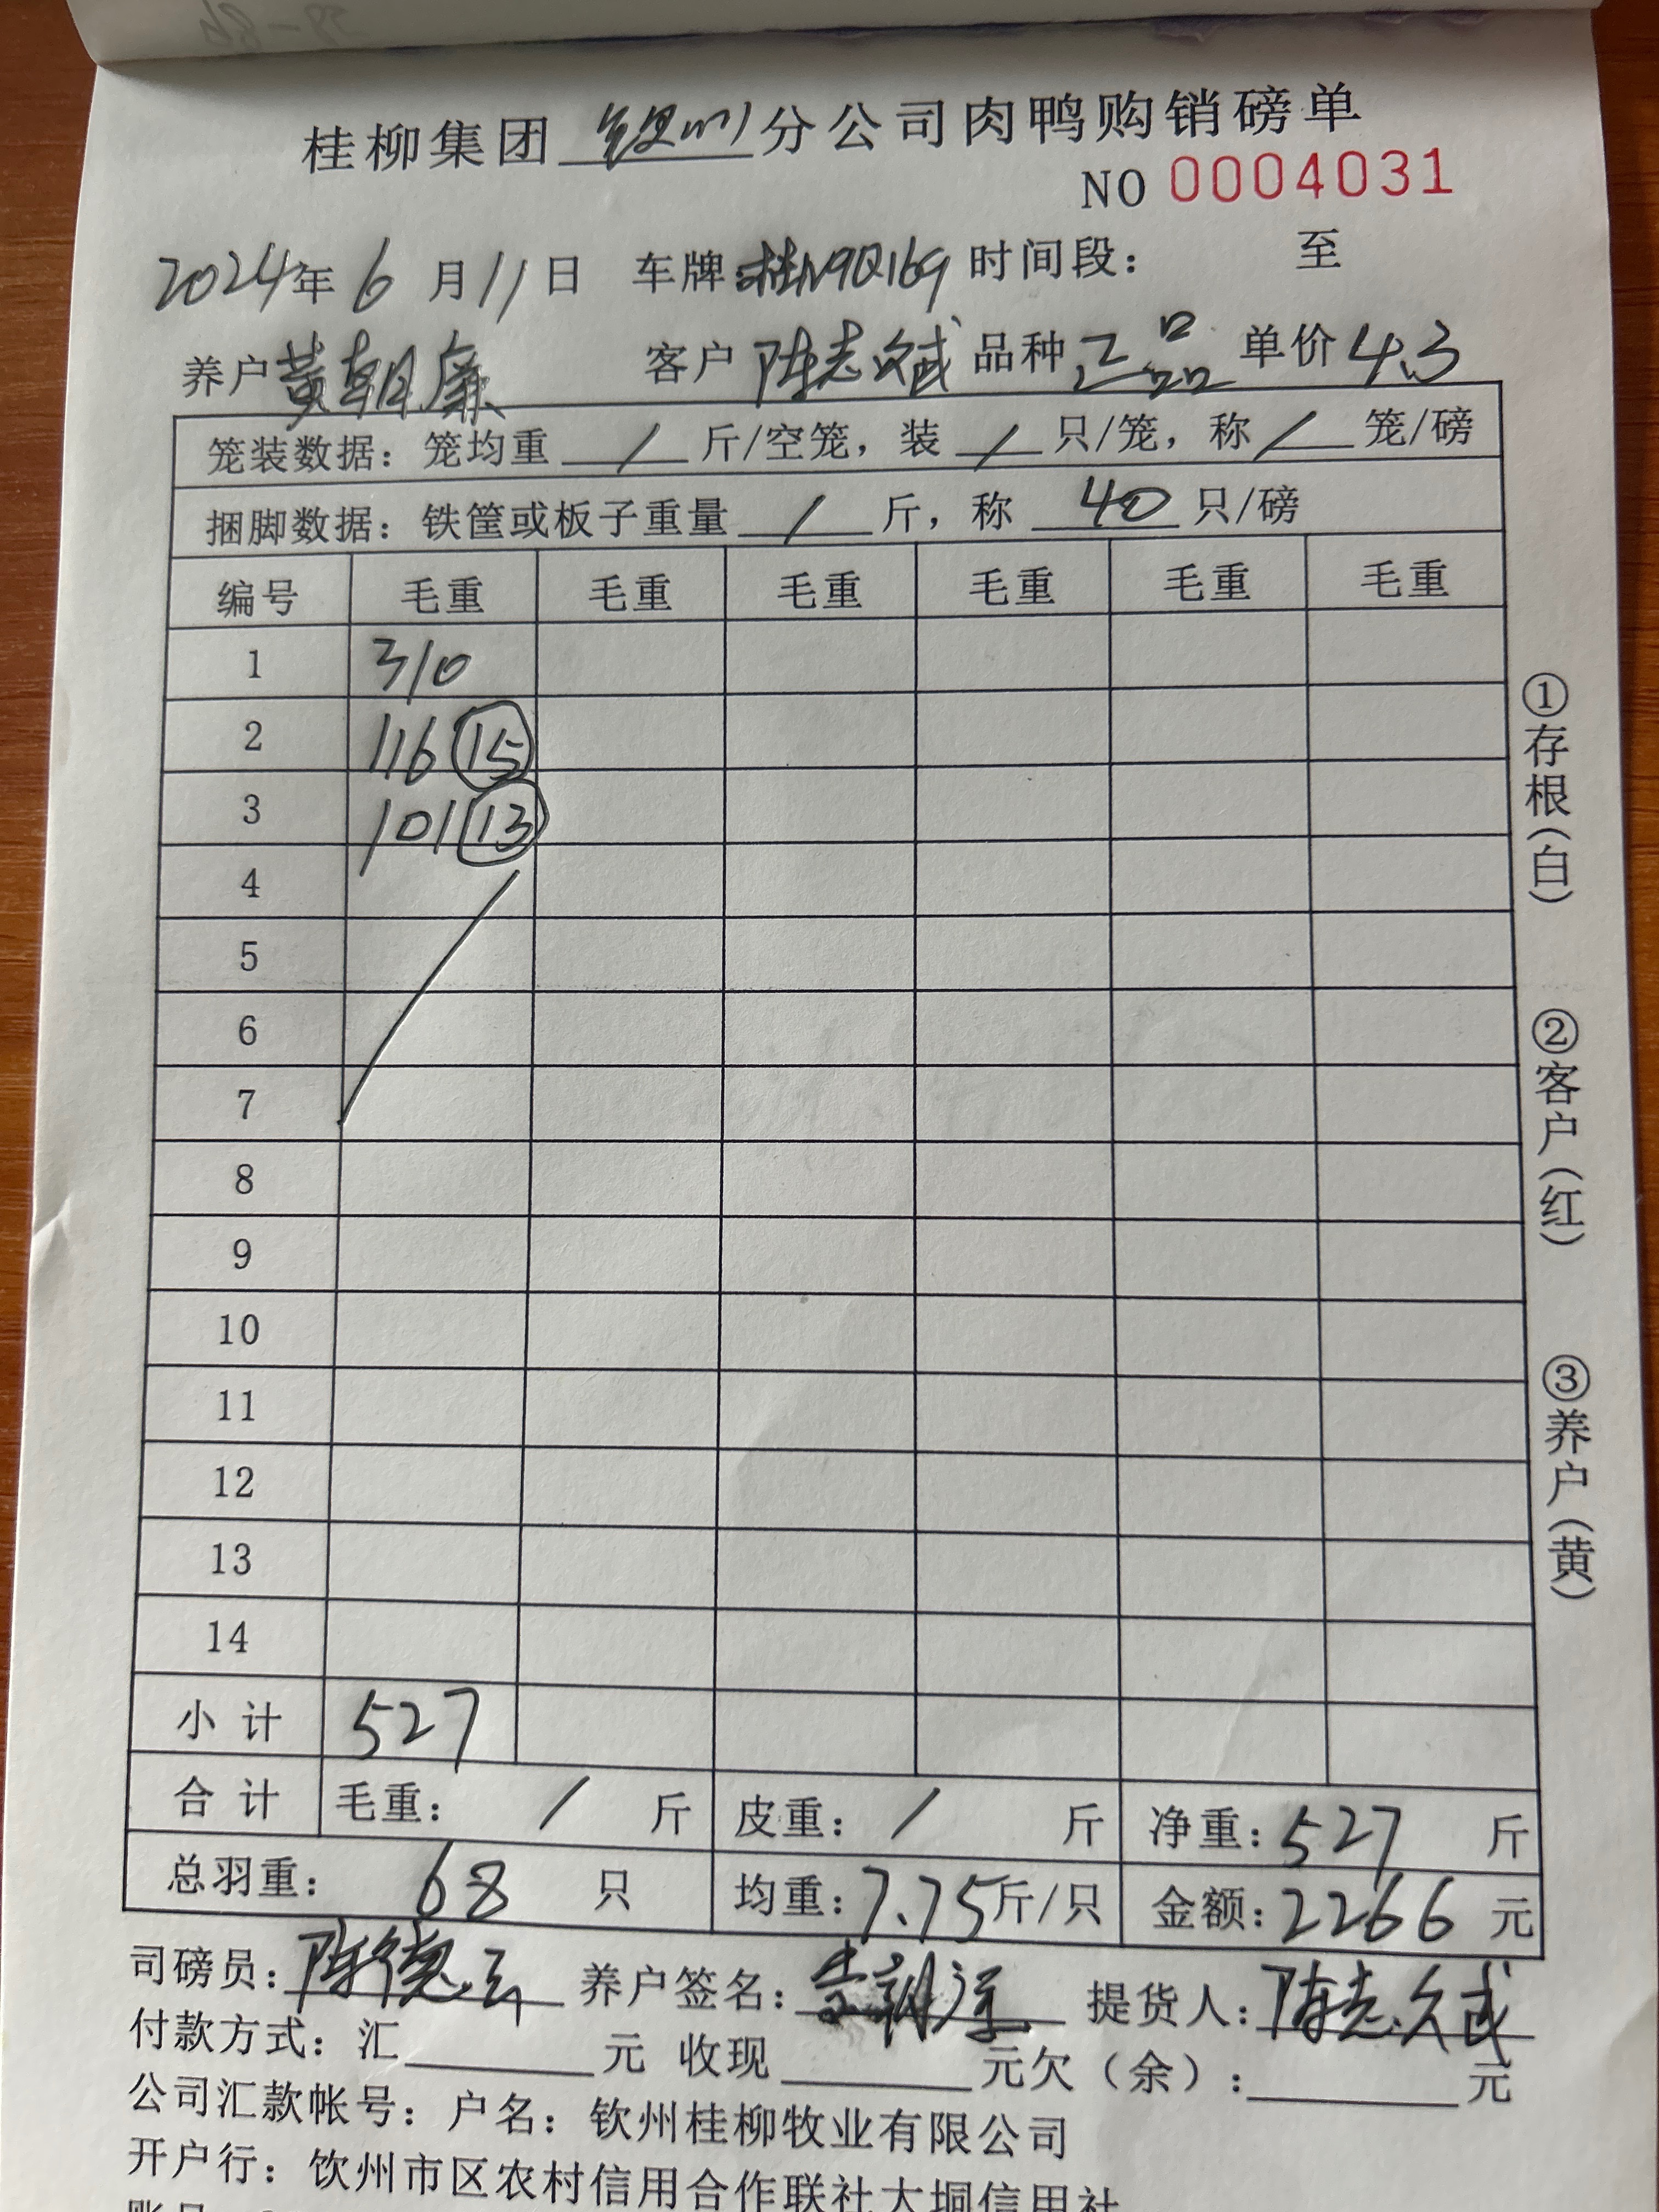 桂柳集团 钦州 分公司肉鸭购销磅单
NO 0004031
2024年 6 月 11 日 车牌:桂N9Q169 时间段: 至
养户 黄朝廉 客户 陈志斌 品种 正品 单价 4.3
笼装数据: 笼均重 / 斤/空笼, 装 / 只/笼, 称 / 笼/磅
捆脚数据: 铁筐或板子重量 / 斤, 称 40 只/磅
编号 毛重 毛重 毛重 毛重 毛重 毛重
1 310
2 116 ⑮
3 101 ⑬
4
5
6
7
8
9
10
11
12
13
14
小计 527
合计 毛重: / 斤 皮重: / 斤 净重: 527 斤
总羽重: 68 只 均重: 7.75 斤/只 金额: 2266 元
司磅员: 养户签名: 提货人: 陈志斌
付款方式: 汇 元 收现 元欠(余): 元
公司汇款帐号: 户名: 钦州桂柳牧业有限公司
开户行: 钦州市区农村信用合作联社大垌信用社
①存根(白) ②客户(红) ③养户(黄)